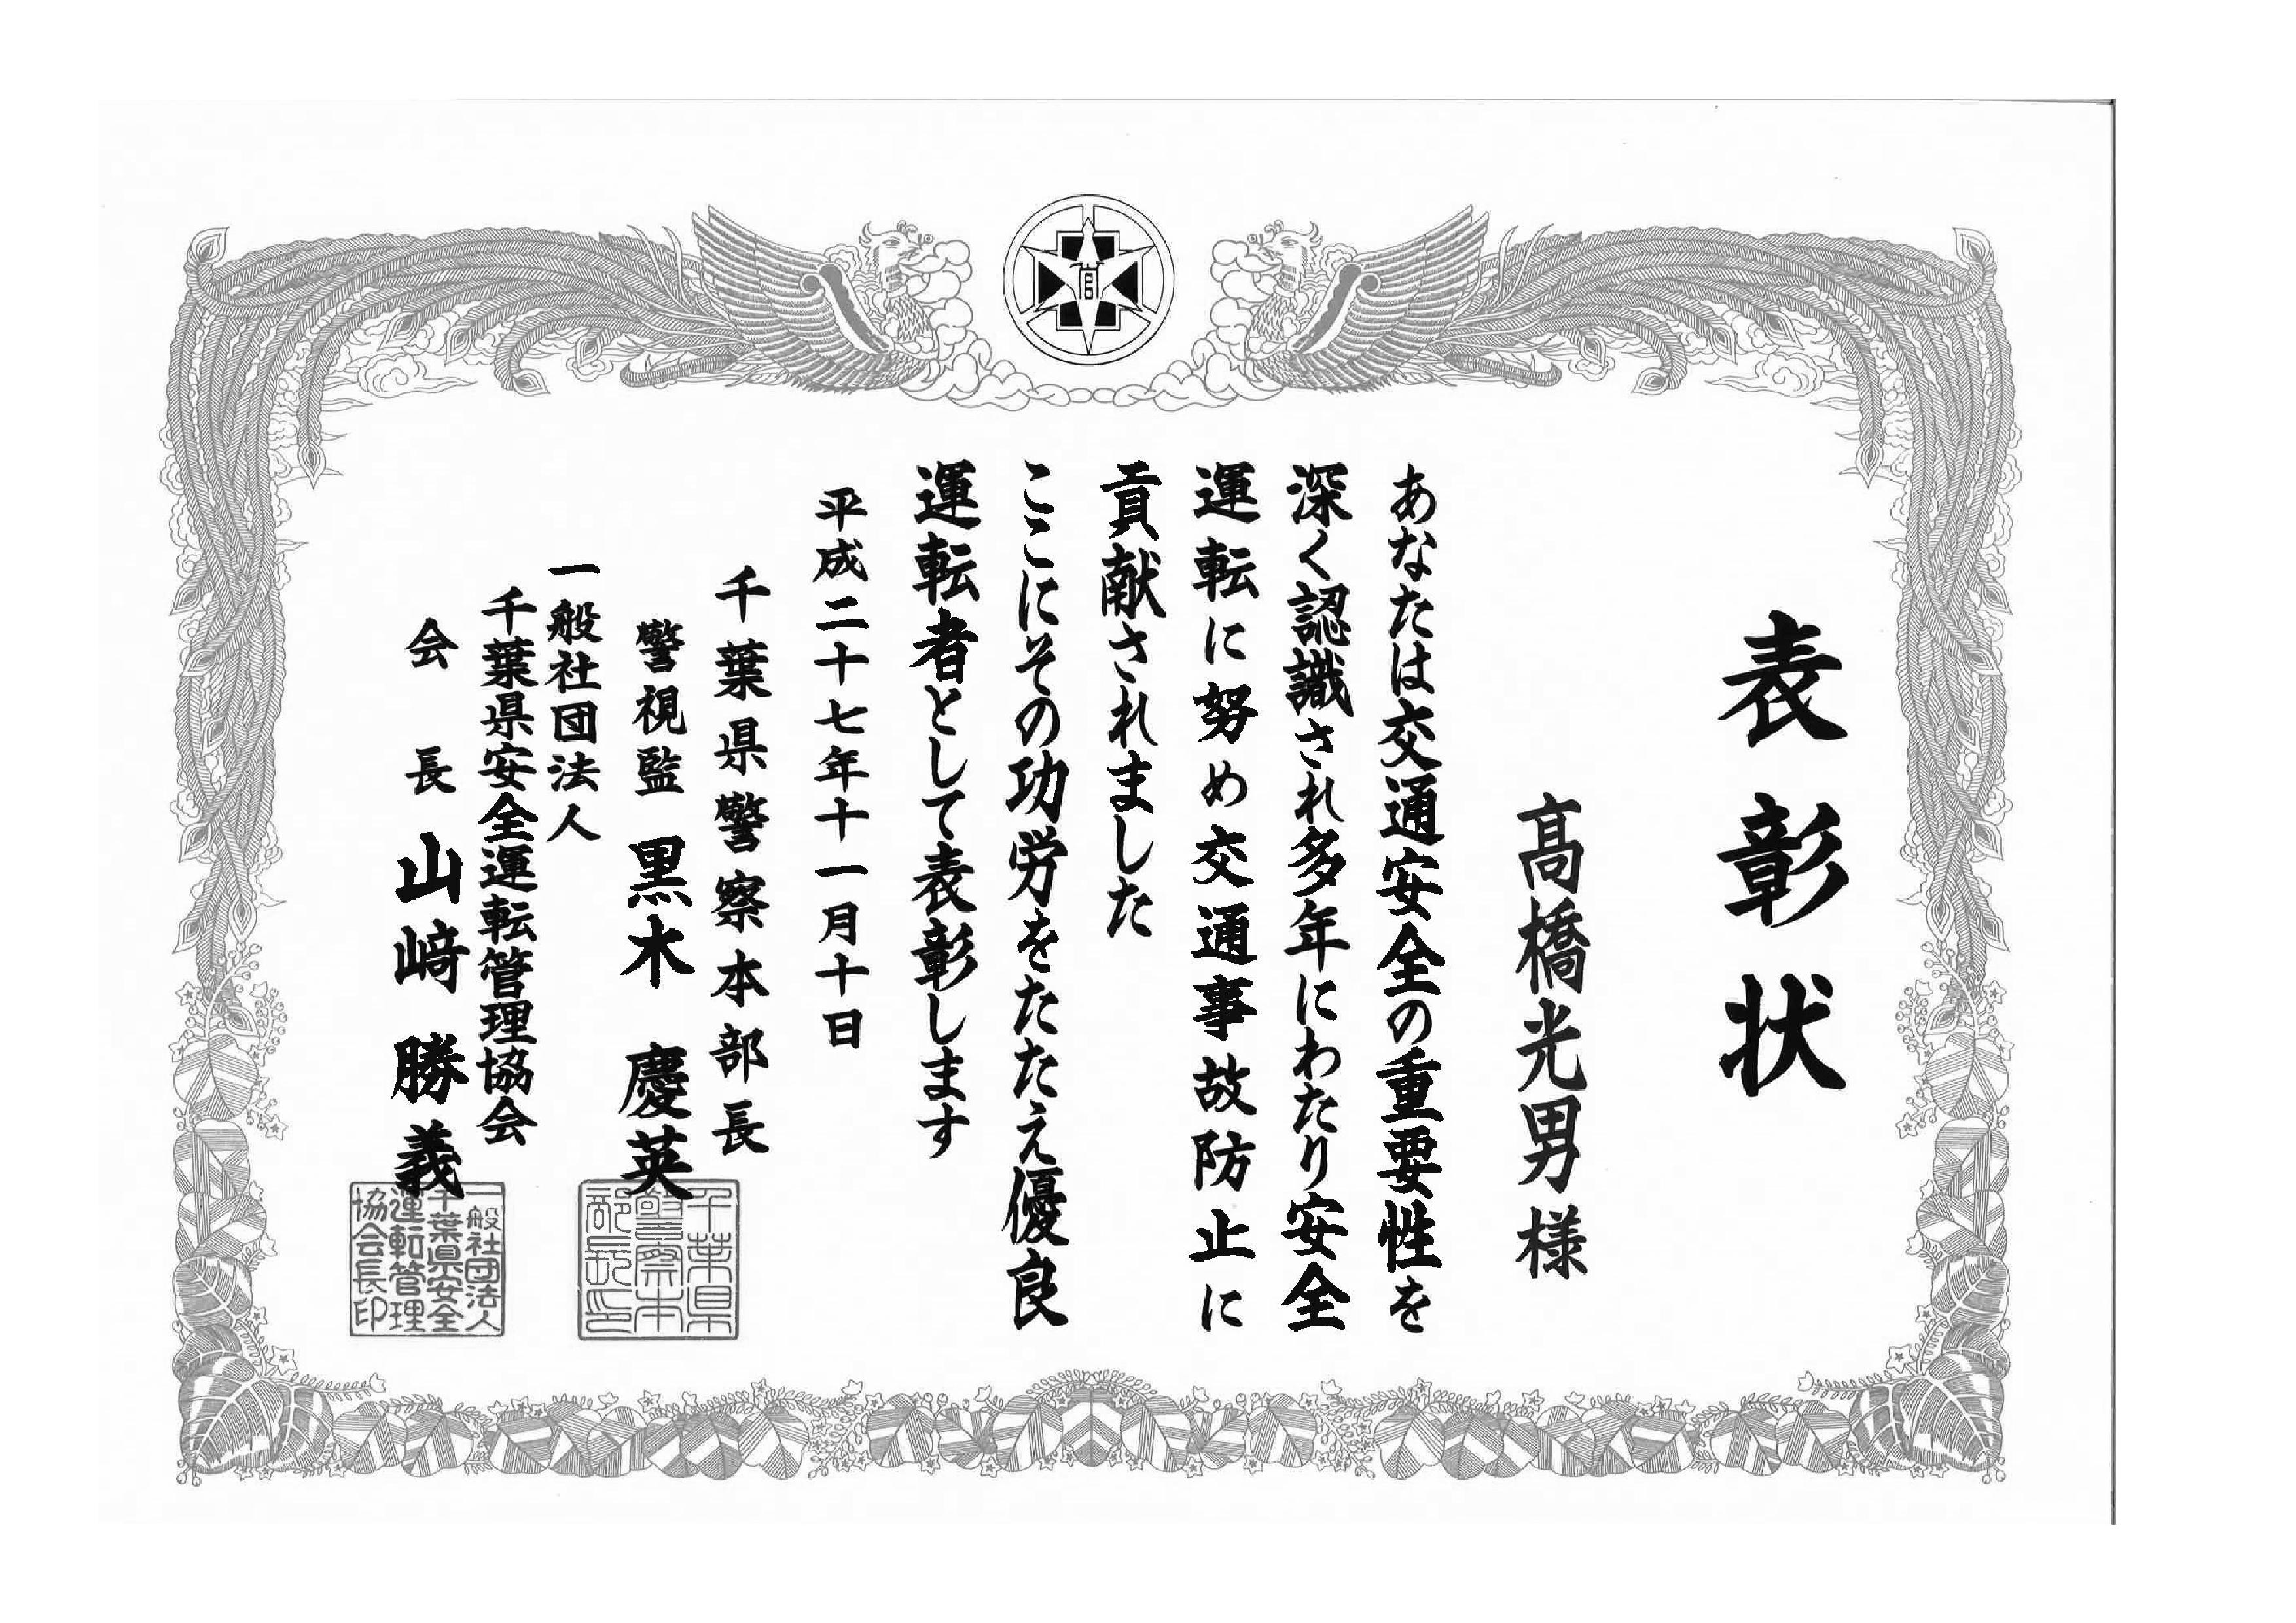 表彰状
髙橋光男様
あなたは交通安全の重要性を
深く認識され多年にわたり安全
運転に努め交通事故防止に
貢献されました
ここにその功労をたたえ優良
運転者として表彰します
平成二十七年十一月十日
千葉県警察本部長
警視監 黒木慶英
一般社団法人
千葉県安全運転管理協会
会長 山﨑勝義
千葉県
警察本
部長印
一般社団法人
千葉県安全
運転管理
協会長印